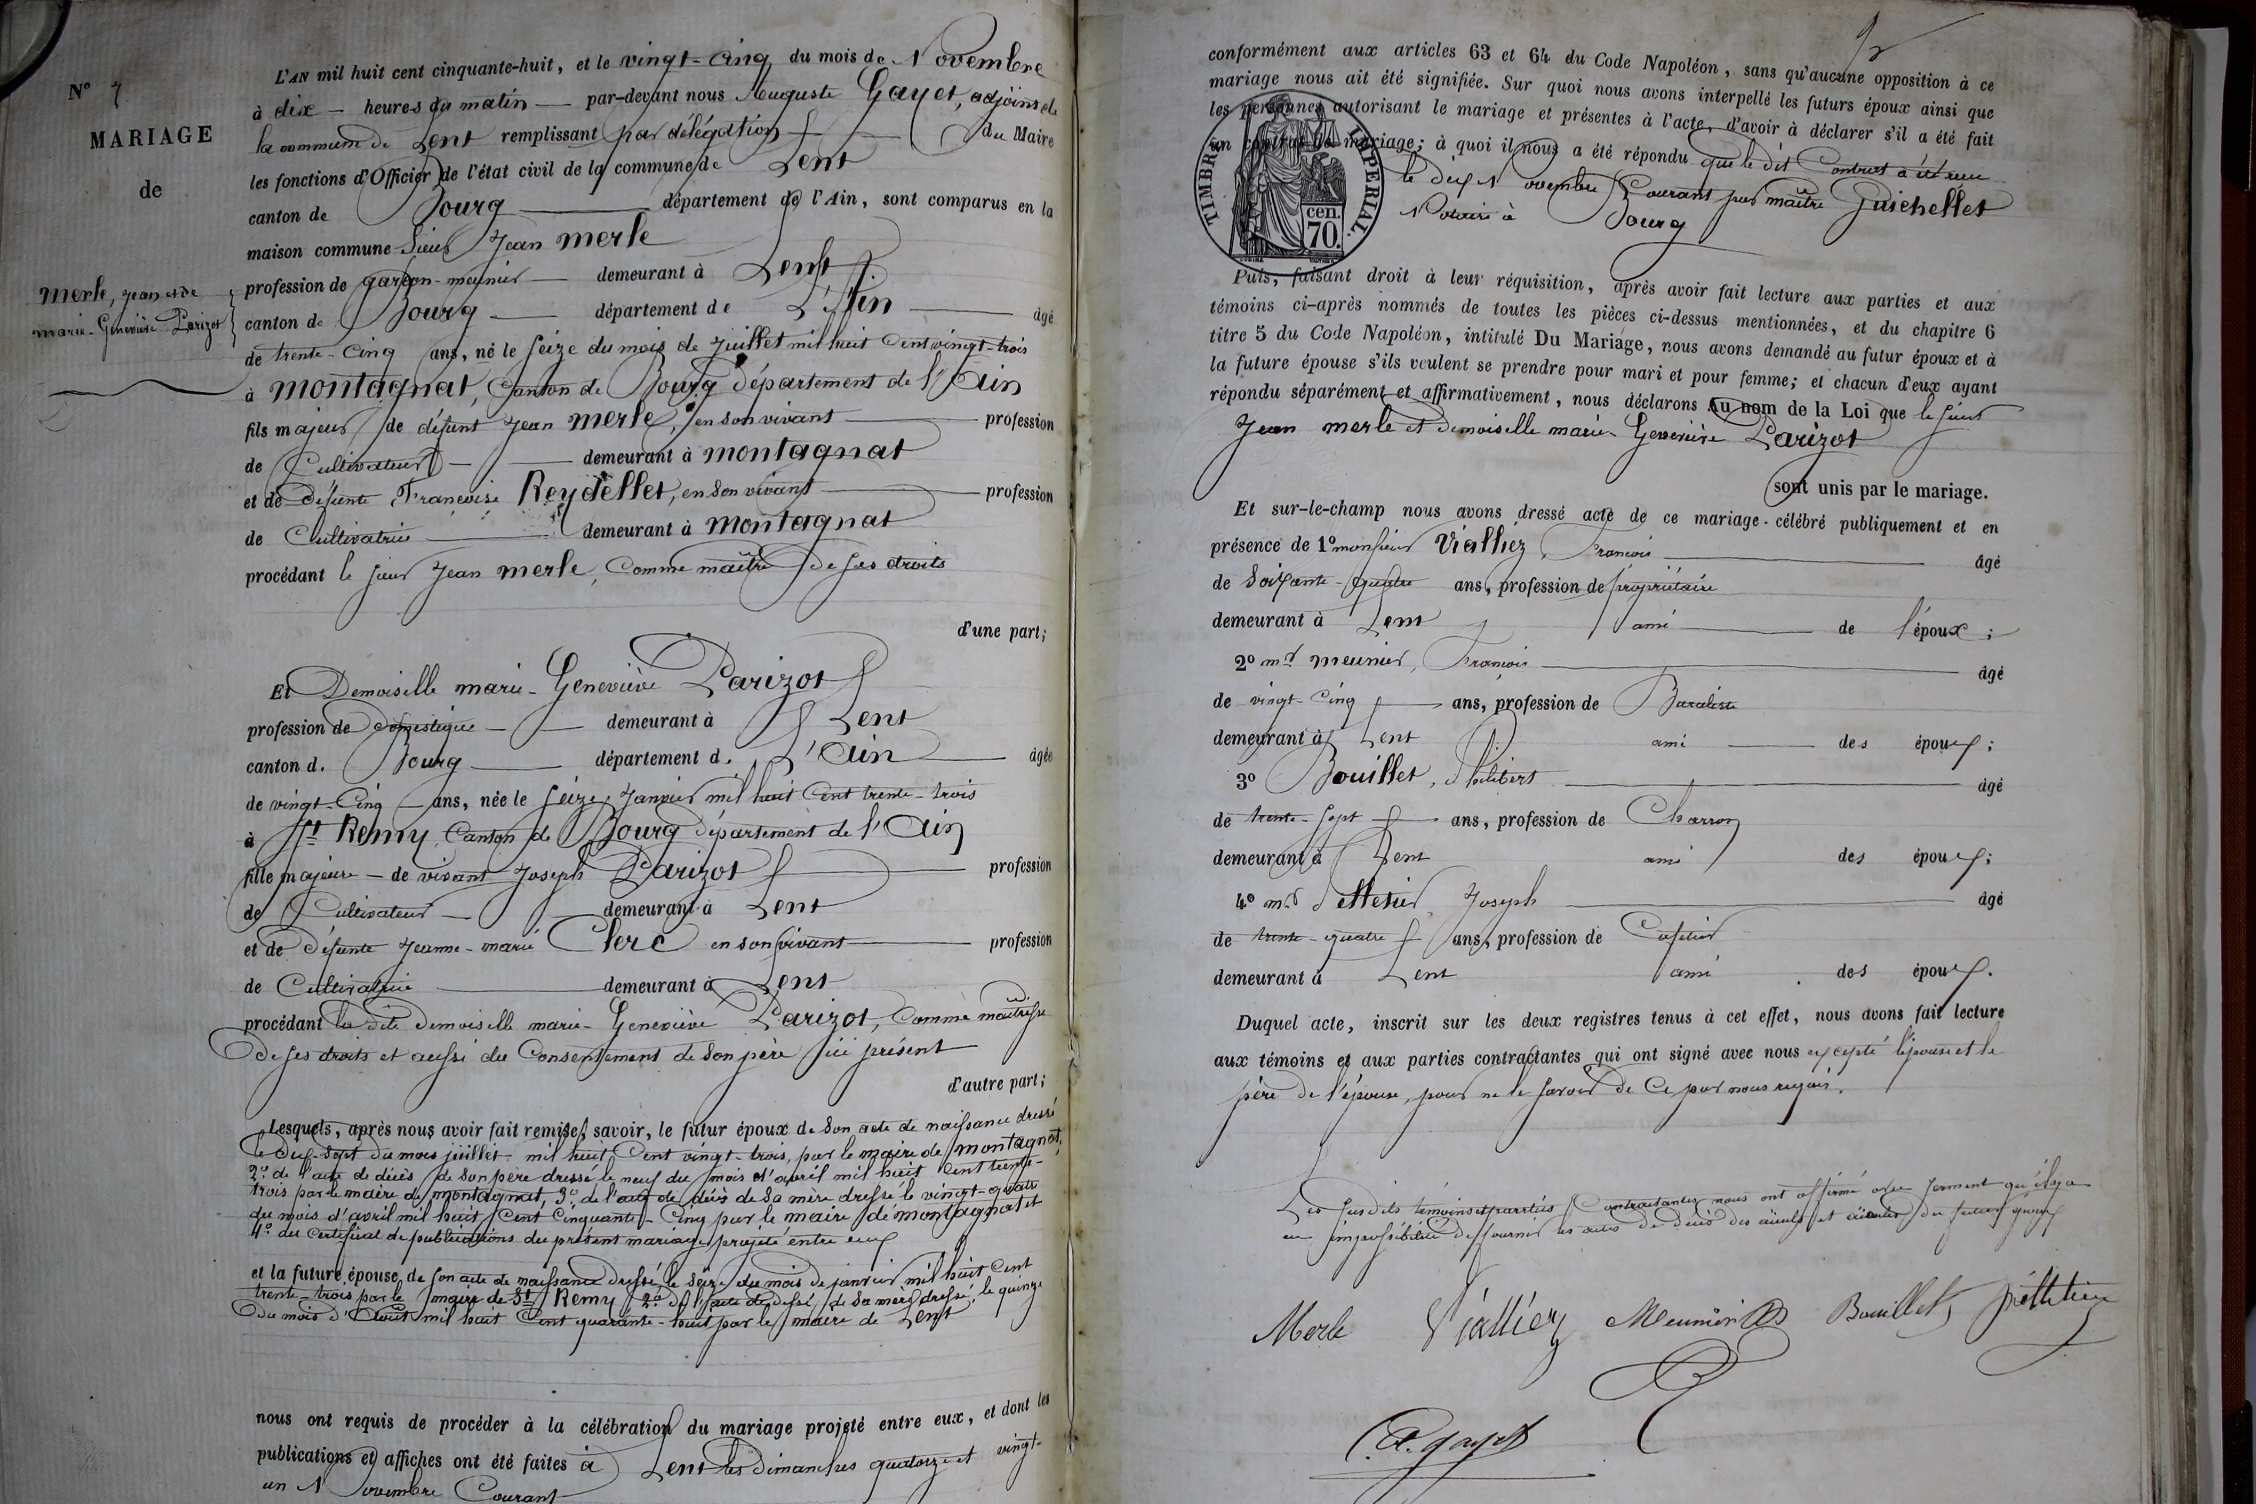 N° 7
MARIAGE
de
Merle, Jean et de
Marie-Geneviève Parizot
L'AN mil huit cent cinquante-huit, et le vingt-cinq du mois de Novembre
à dix heures du matin par-devant nous Auguste Gayet, adjoint de
la commune de Lent remplissant par délégation du Maire
les fonctions d'Officier de l'état civil de la commune de Lent
canton de Bourg département de l'Ain, sont comparus en la
maison commune Sieur Jean Merle
profession de garçon-meunier demeurant à Lent
canton de Bourg département de L'Ain âgé
de trente-cinq ans, né le seize du mois de Juillet mil huit cent vingt-trois
à Montagnat, Canton de Bourg département de l'Ain
fils majeur de défunt Jean Merle, en son vivant profession
de Cultivateur demeurant à Montagnat
et de défunte Françoise Reydellet, en son vivant profession
de Cultivatrice demeurant à Montagnat
procédant le sieur Jean Merle, comme maître de ses droits
d'une part;
Et Demoiselle Marie-Geneviève Parizot
profession de domestique demeurant à Lent
canton d. Bourg département d. L'Ain âgée
de vingt-cinq ans, née le seize Janvier mil huit cent trente-trois
à St Remy, Canton de Bourg département de l'Ain
fille majeure de vivant Joseph Parizot profession
de Cultivateur demeurant à Lent
et de défunte Jeanne-Marie Clerc en son vivant profession
de Cultivatrice demeurant à Lent
procédant la dite demoiselle Marie-Geneviève Parizot, comme maîtresse
de ses droits et aussi du Consentement de son père ici présent
d'autre part;
Lesquels, après nous avoir fait remise, savoir, le futur époux de son acte de naissance dressé
le dix-sept du mois juillet mil huit cent vingt-trois, par le maire de Montagnat,
2° de l'acte de décès de son père dressé le neuf du mois d'avril mil huit cent trente-
trois par le maire de Montagnat, 3° de l'acte de décès de sa mère dressé le vingt-quatre
du mois d'avril mil huit cent cinquante-cinq par le maire de Montagnat et
4° du certificat de publications du présent mariage projeté entre eux
et la future épouse, de son acte de naissance dressé le seize du mois de janvier mil huit cent
trente-trois par le maire de St Remy 2° de l'acte de décès de sa mère dressé, le quinze
du mois d'Août mil huit cent quarante-huit par le maire de Lent
nous ont requis de procéder à la célébration du mariage projeté entre eux, et dont les
publications et affiches ont été faites à Lent les dimanches quatorze et vingt-
un Novembre Courant
conformément aux articles 63 et 64 du Code Napoléon, sans qu'aucune opposition à ce
mariage nous ait été signifiée. Sur quoi nous avons interpellé les futurs époux ainsi que
les personnes autorisant le mariage et présentes à l'acte, d'avoir à déclarer s'il a été fait
un contrat de mariage; à quoi il nous a été répondu que le dit Contrat a été reçu
le dix Novembre Courant par maître Guichellet
Notaire à Bourg
TIMBRE IMPERIAL
70 cen.
Puis, faisant droit à leur réquisition, après avoir fait lecture aux parties et aux
témoins ci-après nommés de toutes les pièces ci-dessus mentionnées, et du chapitre 6
titre 5 du Code Napoléon, intitulé Du Mariage, nous avons demandé au futur époux et à
la future épouse s'ils veulent se prendre pour mari et pour femme; et chacun d'eux ayant
répondu séparément et affirmativement, nous déclarons Au nom de la Loi que le sieur
Jean Merle et demoiselle Marie-Geneviève Parizot
sont unis par le mariage.
Et sur-le-champ nous avons dressé acte de ce mariage célébré publiquement et en
présence de 1° monsieur Vialliez, François âgé
de Soixante-quatre ans, profession de propriétaire
demeurant à Lent ami de l'époux;
2° mr Meunier, François âgé
de vingt-cinq ans, profession de Buraliste
demeurant à Lent ami des époux;
3° Bouillet, Philibert âgé
de trente-sept ans, profession de Charron
demeurant à Lent ami des époux;
4° mr Pelletier Joseph âgé
de trente-quatre ans, profession de Cafetier
demeurant à Lent ami des époux.
Duquel acte, inscrit sur les deux registres tenus à cet effet, nous avons fait lecture
aux témoins et aux parties contractantes qui ont signé avec nous excepté l'épouse et le
père de l'épouse, pour ne le savoir de ce par nous requis.
Les susdits témoins et parties Contractantes nous ont affirmé avec serment qu'il y a
impossibilité de fournir les actes de décès des aïeuls et aïeules du futur époux
Merle Vialliez Meunier Bouillet Pelletier
A. Gayet